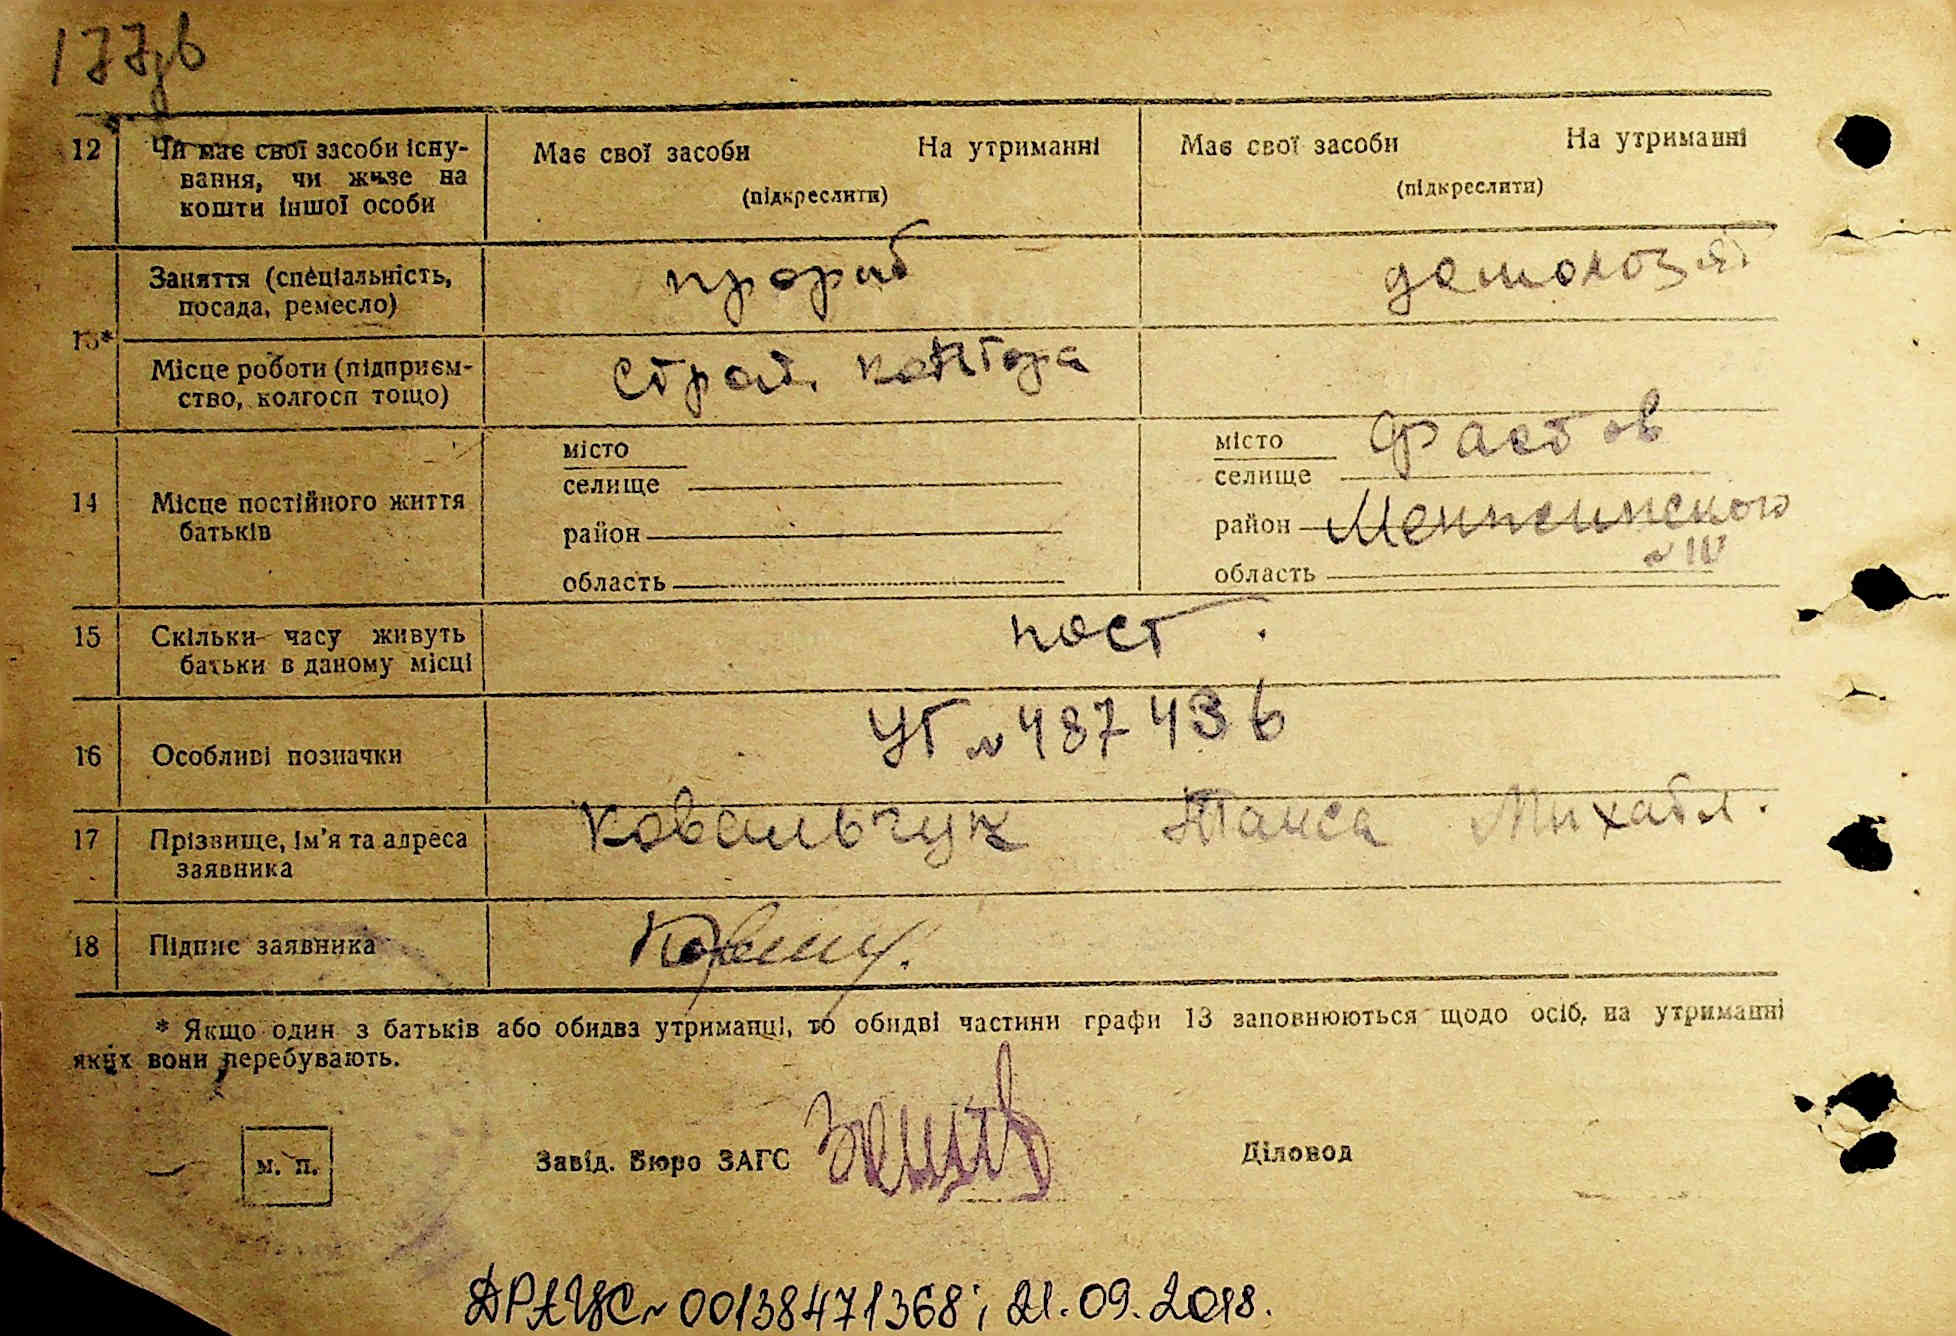 177зв
12 Чи має свої засоби існу- Має свої засоби На утриманні Має свої засоби На утриманні
вання, чи живе на (підкреслити) (підкреслити)
кошти іншої особи
Заняття (спеціальність, прораб домохоз.
посада, ремесло)
13*
Місце роботи (підприєм- Строй. контора
ство, колгосп тощо)
14 Місце постійного життя батьків
місто місто Фастов
селище селище
район район Менжинского
область область
15 Скільки часу живуть пост.
батьки в даному місці
16 Особливі позначки УГ № 487436
17 Прізвище, ім'я та адреса Ковальчук Таиса Михайл.
заявника
18 Підпис заявника
* Якщо один з батьків або обидва утриманці, то обидві частини графи 13 заповнюються щодо осіб, на утриманні
яких вони перебувають.
м. п. Завід. Бюро ЗАГС Діловод
ДРАЦС № 00138471368; 21.09.2018.